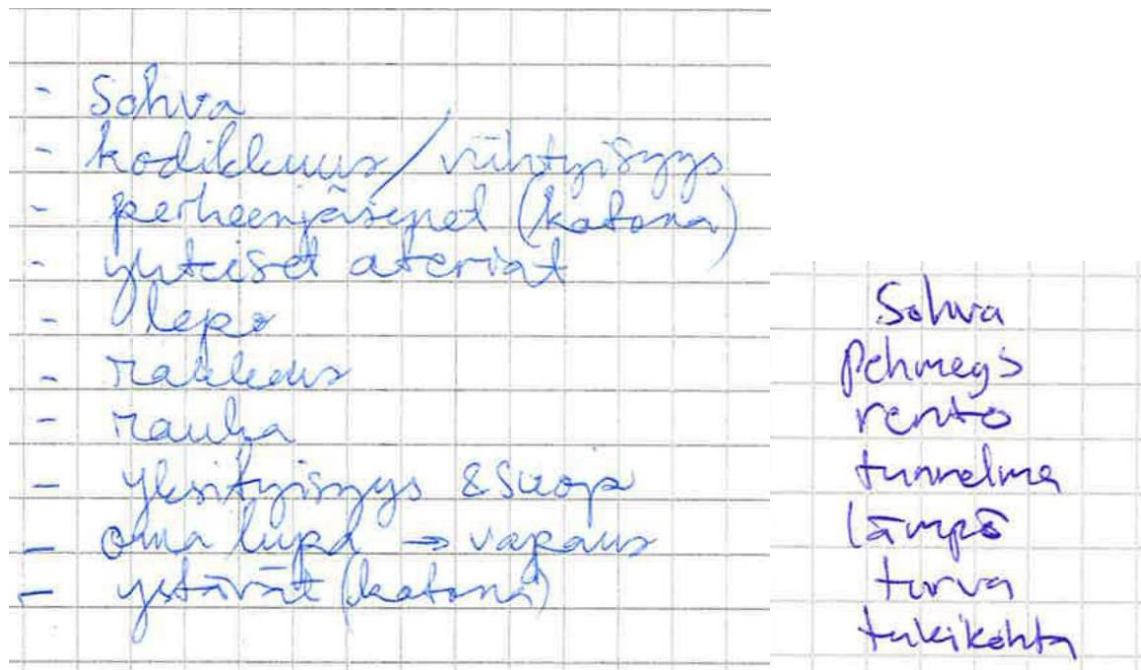 - Sohva
- kodikkuus/viihtyisyys
- perheenjäsenet (katona)
- yhteiset ateriat
- lepo
- rakkaus
- rauha
- yksityisyys & suoja
- oma lupa → vapaus
- ystävät (katona)
Sohva
pehmeys
rento
tunnelma
lämpö
turva
tukikohta